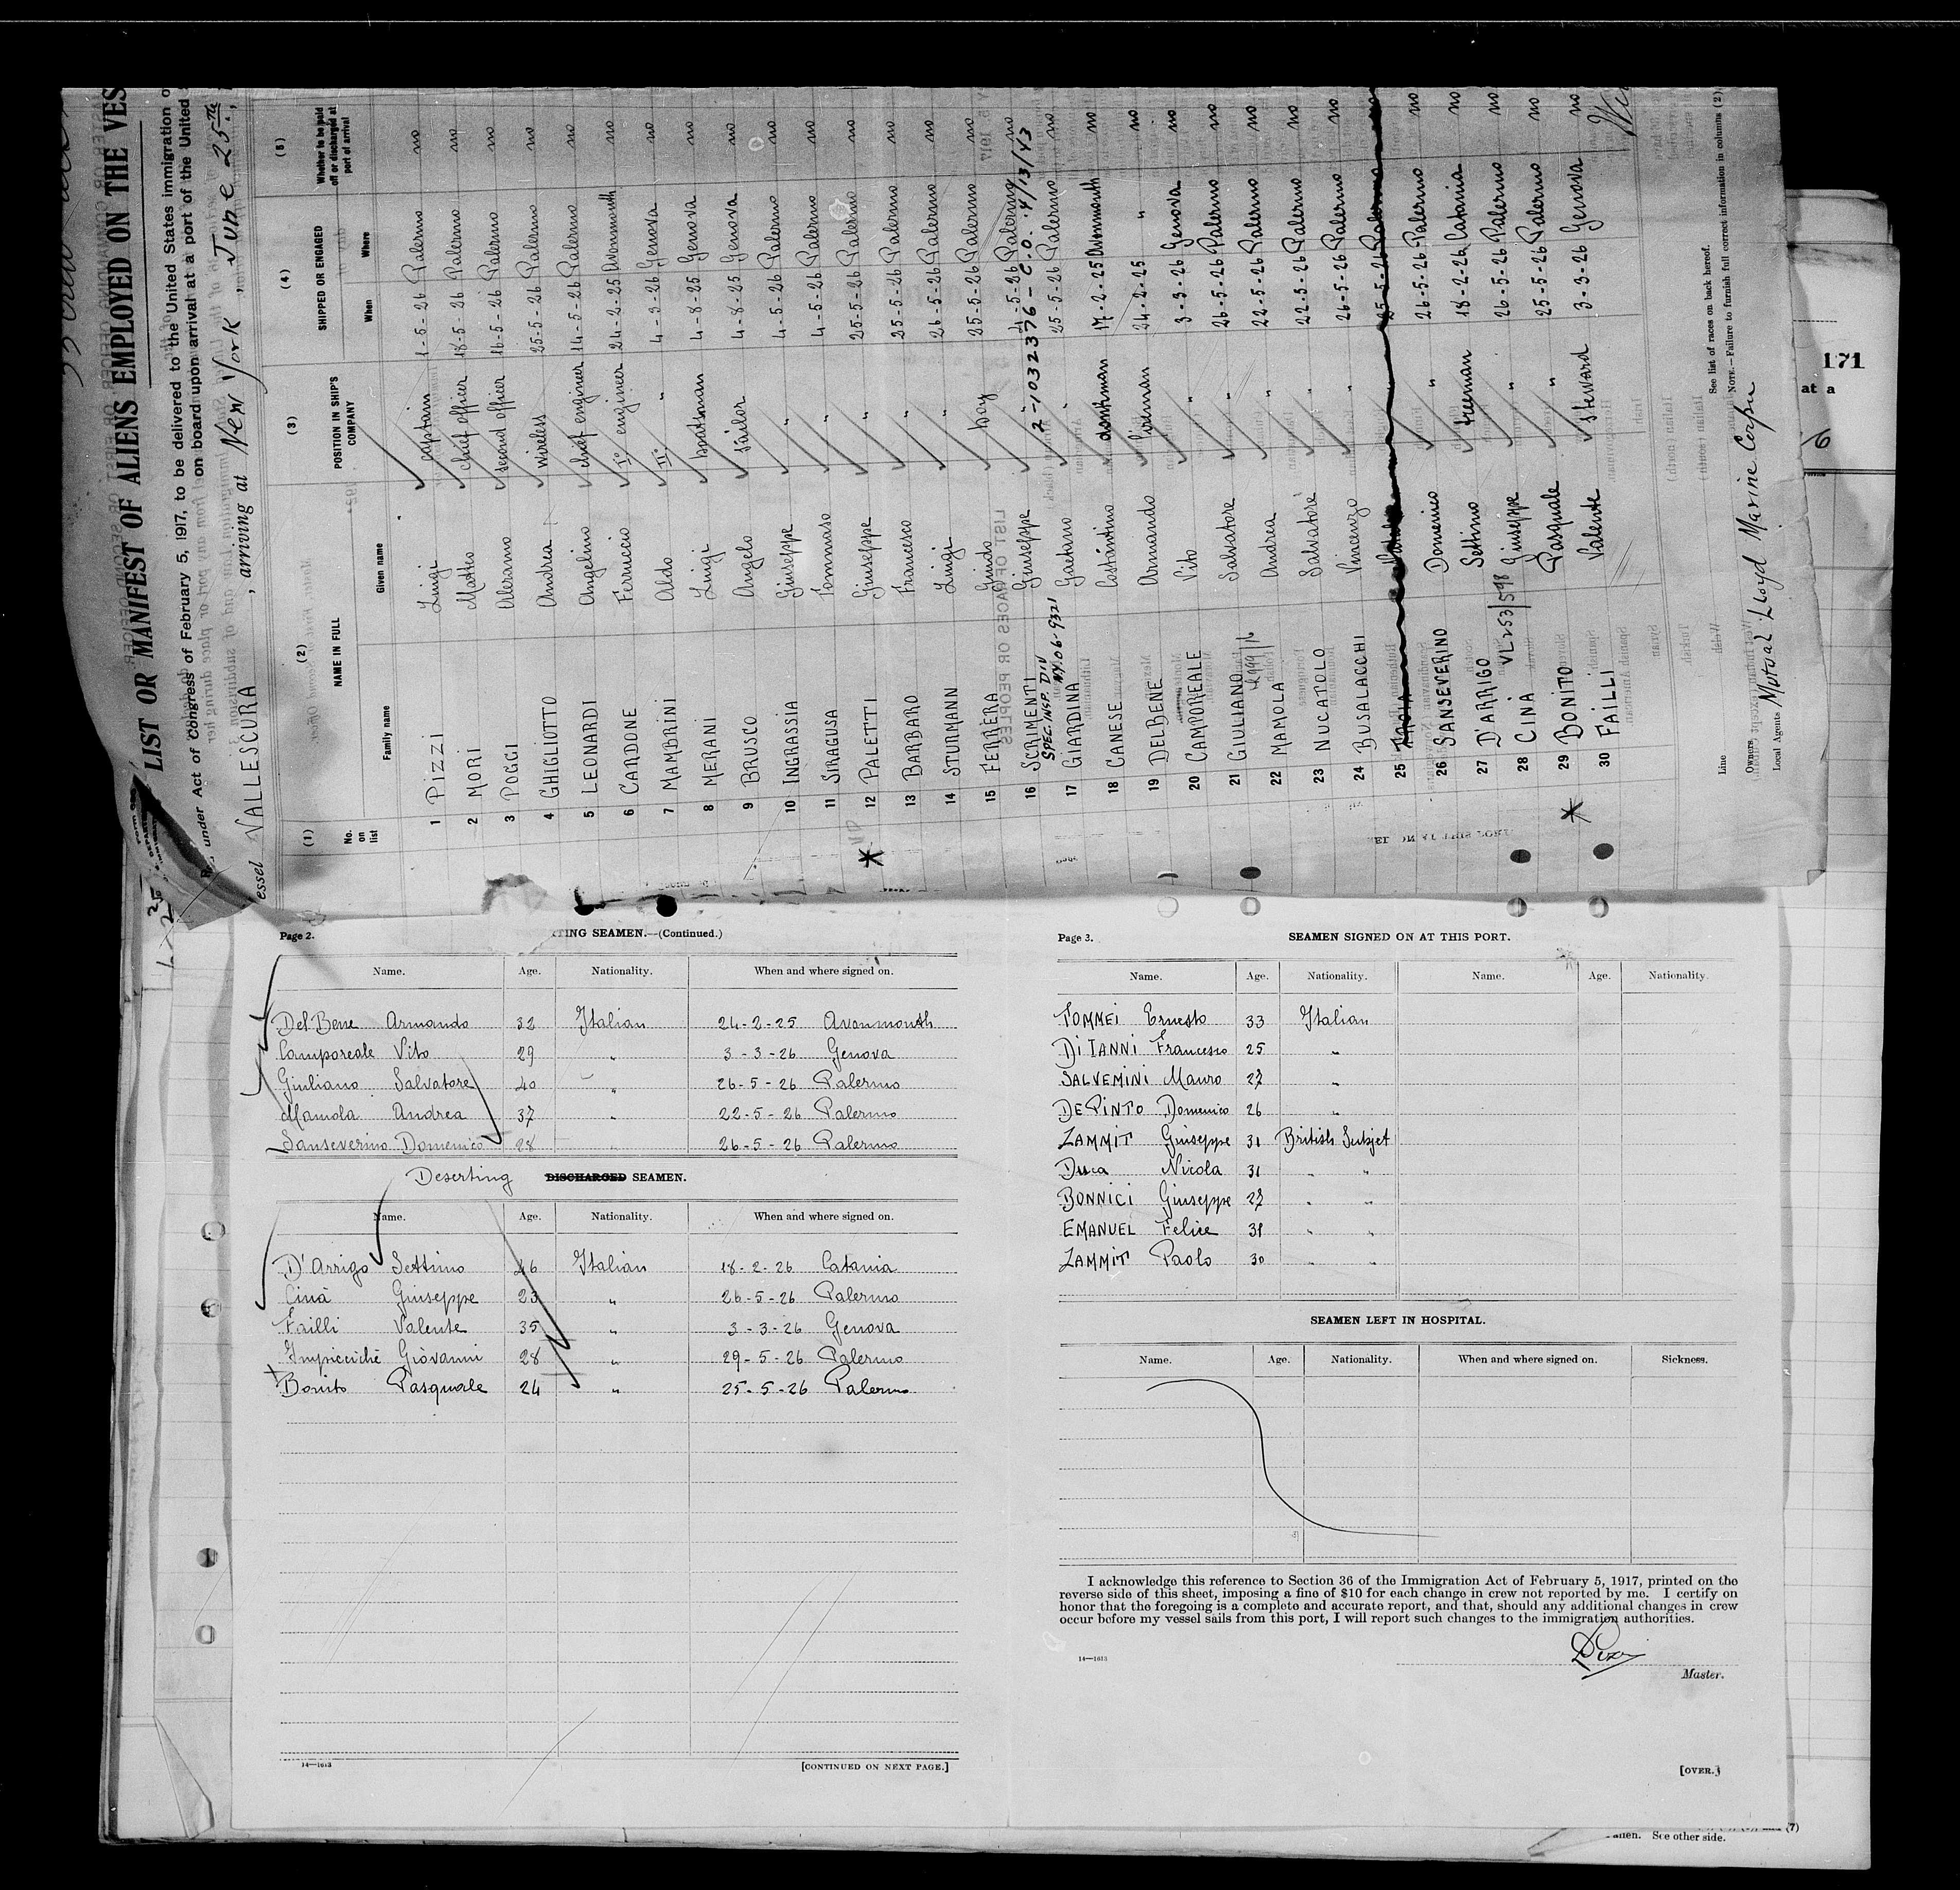 LIST OR MANIFEST OF ALIENS EMPLOYED ON THE VES
under Act of Congress of February 5, 1917, to be delivered to the United States immigration o
on board upon arrival at a port of the United
essel VALLESCURA, arriving at New York June 25th
(1) (2) (3) (4) (5)
No. on list NAME IN FULL POSITION IN SHIP'S COMPANY SHIPPED OR ENGAGED Whether to be paid off or discharged at port of arrival
Family name Given name When Where
1 PIZZI Luigi captain 1-5-26 Palermo no
2 MORI Matteo chief officer 18-5-26 Palermo no
3 POGGI Alerano second officer 16-5-26 Palermo no
4 GHIGLIOTTO Andrea wireless 25-5-26 Palermo no
5 LEONARDI Angelino chief engineer 14-5-26 Palermo no
6 CARDONE Ferruccio I° engineer 24-2-25 Avonmouth no
7 MAMBRINI Aldo II° " 4-3-26 Genova no
8 MERANI Luigi boatsman 4-8-25 Genova no
9 BRUSCO Angelo sailor 4-8-25 Genova no
10 INGRASSIA Giuseppe " 4-5-26 Palermo no
11 SIRAGUSA Tommaso " 4-5-26 Palermo no
12 PALETTI Giuseppe " 25-5-26 Palermo no
13 BARBARO Francesco " 25-5-26 Palermo no
14 STURMANN Luigi " 26-5-26 Palermo no
15 FERRERA Guido boy 25-5-26 Palermo no
16 SCRIMENTI Giuseppe " 4-5-26 Palermo no
SPEC. INSP. DIV NY.06-9321 2-1032376-C.O. 4/13/43
17 GIARDINA Gaetano " 25-5-26 Palermo no
18 CANESE Costantino donkman 17-2-25 Avonmouth no
19 DELBENE Armando fireman 24-2-25 " no
20 CAMPOREALE Vito " 3-3-26 Genova no
21 GIULIANO Salvatore " 26-5-26 Palermo no
22 MAMOLA Andrea " 22-5-26 Palermo no
23 NUCATOLO Salvatore " 22-5-26 Palermo no
24 BUSALACCHI Vincenzo " 26-5-26 Palermo no
25 25-5-26 Palermo no
26 SANSEVERINO Domenico " 26-5-26 Palermo no
27 D'ARRIGO Settimo 18-2-26 Catania no
28 CINÀ Giuseppe " 26-5-26 Palermo no
VL 253/598
29 BONITO Pasquale " 25-5-26 Palermo no
30 FAILLI Valente steward 3-3-26 Genova no
Line
Owners
Local Agents Mutual Lloyd Marine Corpn
See list of races on back hereof.
NOTE.—Failure to furnish full correct information in columns (2)
171
at a
Page 2.
RTING SEAMEN.—(Continued.)
Name. Age. Nationality. When and where signed on.
Del Bene Armando 32 Italian 24-2-25 Avonmouth
Camporeale Vito 29 " 3-3-26 Genova
Giuliano Salvatore 40 " 26-5-26 Palermo
Mamola Andrea 37 " 22-5-26 Palermo
Sanseverino Domenico 28 " 26-5-26 Palermo
Deserting DISCHARGED SEAMEN.
Name. Age. Nationality. When and where signed on.
D'Arrigo Settimo 46 Italian 18-2-26 Catania
Cinà Giuseppe 23 " 26-5-26 Palermo
Failli Valente 35 " 3-3-26 Genova
Impiccichè Giovanni 28 " 29-5-26 Palermo
Bonito Pasquale 24 " 25-5-26 Palermo
14—1613
[CONTINUED ON NEXT PAGE.]
Page 3.
SEAMEN SIGNED ON AT THIS PORT.
Name. Age. Nationality. Name. Age. Nationality.
TOMMEI Ernesto 33 Italian
Di IANNI Francesco 25 "
SALVEMINI Mauro 27 "
DE PINTO Domenico 26 "
ZAMMIT Giuseppe 31 British Subjet
Duca Nicola 31 " "
BONNICI Giuseppe 27 " "
EMANUEL Felice 31 " "
ZAMMIT Paolo 30 " "
SEAMEN LEFT IN HOSPITAL.
Name. Age. Nationality. When and where signed on. Sickness.
I acknowledge this reference to Section 36 of the Immigration Act of February 5, 1917, printed on the
reverse side of this sheet, imposing a fine of $10 for each change in crew not reported by me. I certify on
honor that the foregoing is a complete and accurate report, and that, should any additional changes in crew
occur before my vessel sails from this port, I will report such changes to the immigration authorities.
14—1613
Master.
[OVER.]
See other side.